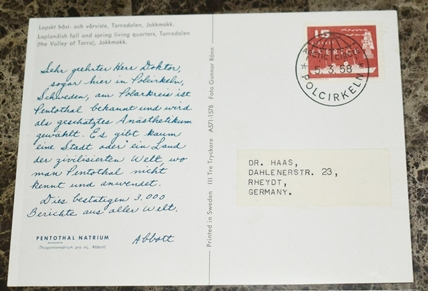 Lapskt höst- och vårviste, Tarradalen, Jokkmokk.
Laplandish fall and spring living quarters, Tarradalen
(the Valley of Tarra), Jokkmokk.
Sehr geehrter Herr Doktor,
sogar hier in Polcirkeln,
Schweden, am Polarkreis ist
Pentothal bekannt und wird
als geschätztes Anästhetikum
gewählt. Es gibt kaum
eine Stadt oder ein Land
der zivilisierten Welt, wo
man Pentothal nicht
kennt und anwendet.
Dies bestätigen 3.000
Berichte aus aller Welt.
Abbott
PENTOTHAL NATRIUM
Printed in Sweden Tre Tryckare Foto Gunnar
15
SVERIGE
3.58
POLCIRKELN
DR. HAAS,
DAHLENERSTR. 23,
RHEYDT,
GERMANY.